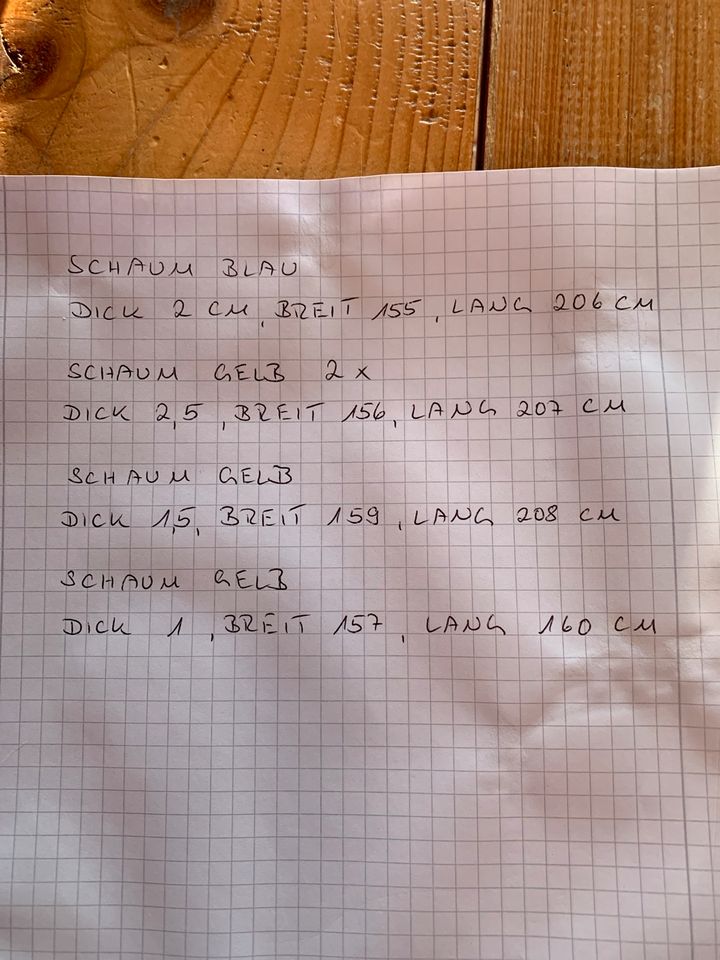 SCHAUM BLAU
DICK 2 CM, BREIT 155, LANG 206 CM
SCHAUM GELB 2 x
DICK 2,5, BREIT 156, LANG 207 CM
SCHAUM GELB
DICK 1,5, BREIT 159, LANG 208 CM
SCHAUM GELB
DICK 1, BREIT 157, LANG 160 CM